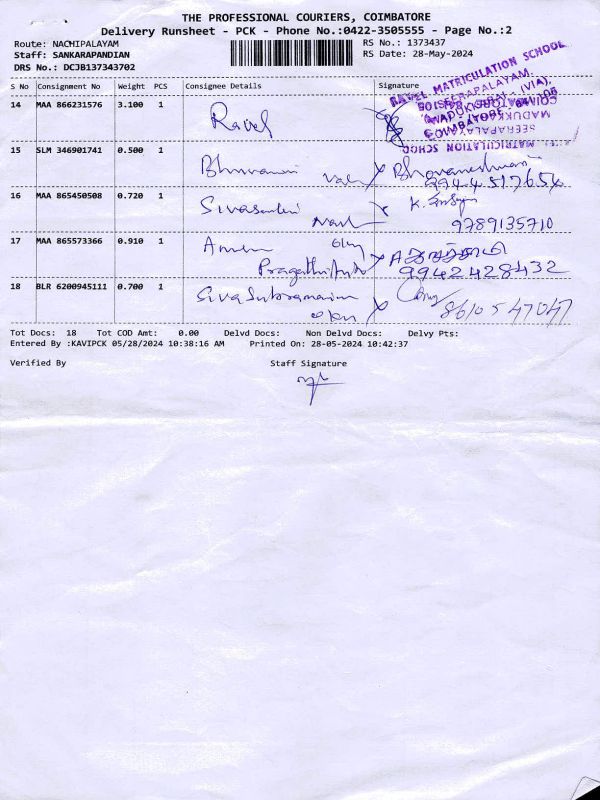 THE PROFESSIONAL COURIERS, COIMBATORE
Delivery Runsheet - PCK - Phone No.:0422-3505555 - Page No.:2
Route: NACHIPALAYAM
Staff: SANKARAPANDIAN
DRS No.: DCJB137343702
RS No.: 1373437
RS Date: 28-May-2024
S No Consignment No Weight PCS Consignee Details Signature
14 MAA 866231576 3.100 1 Ravel
RAVEL MATRICULATION SCHOOL
SEERAPALAYAM,
15 SLM 346901741 0.500 1 Bhuvaneshwari
9944517654
16 MAA 865450508 0.720 1
9789135710
17 MAA 865573366 0.910 1
9942428432
18 BLR 6200945111 0.700 1 Siva Subramaniam
8610547047
Tot Docs: 18 Tot COD Amt: 0.00 Delvd Docs: Non Delvd Docs: Delvy Pts:
Entered By :KAVIPCK 05/28/2024 10:38:16 AM Printed On: 28-05-2024 10:42:37
Verified By Staff Signature